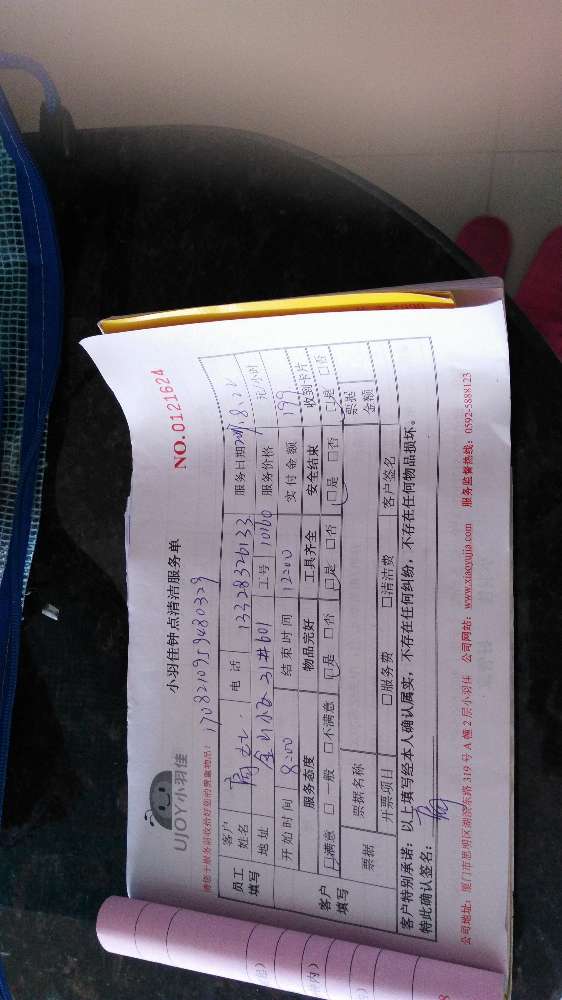 UJOY小羽佳
小羽佳钟点清洁服务单
NO.0121624
170821095948032 9
员工填写
客户姓名
电话 13328326133
服务日期
地址 金山小区31#601
工号 10160
服务价格 元/小时
开始时间 8:00
结束时间 12:00
实付金额 199
客户填写
服务态度 物品完好 工具齐全 安全结束 收到卡片
□满意 □一般 □不满意 □是 □否 □是 □否 □是 □否 □是 □否
票据
票据名称
票据金额
开票项目 □服务费 □清洁费
客户签名
客户特别承诺：以上填写经本人确认属实，不存在任何纠纷，不存在任何物品损坏。
特此确认签名：
公司地址：厦门市思明区湖滨东路319号A幢2层小羽佳 公司网站：www.xiaoyujia.com 服务监督热线：0592-5888123